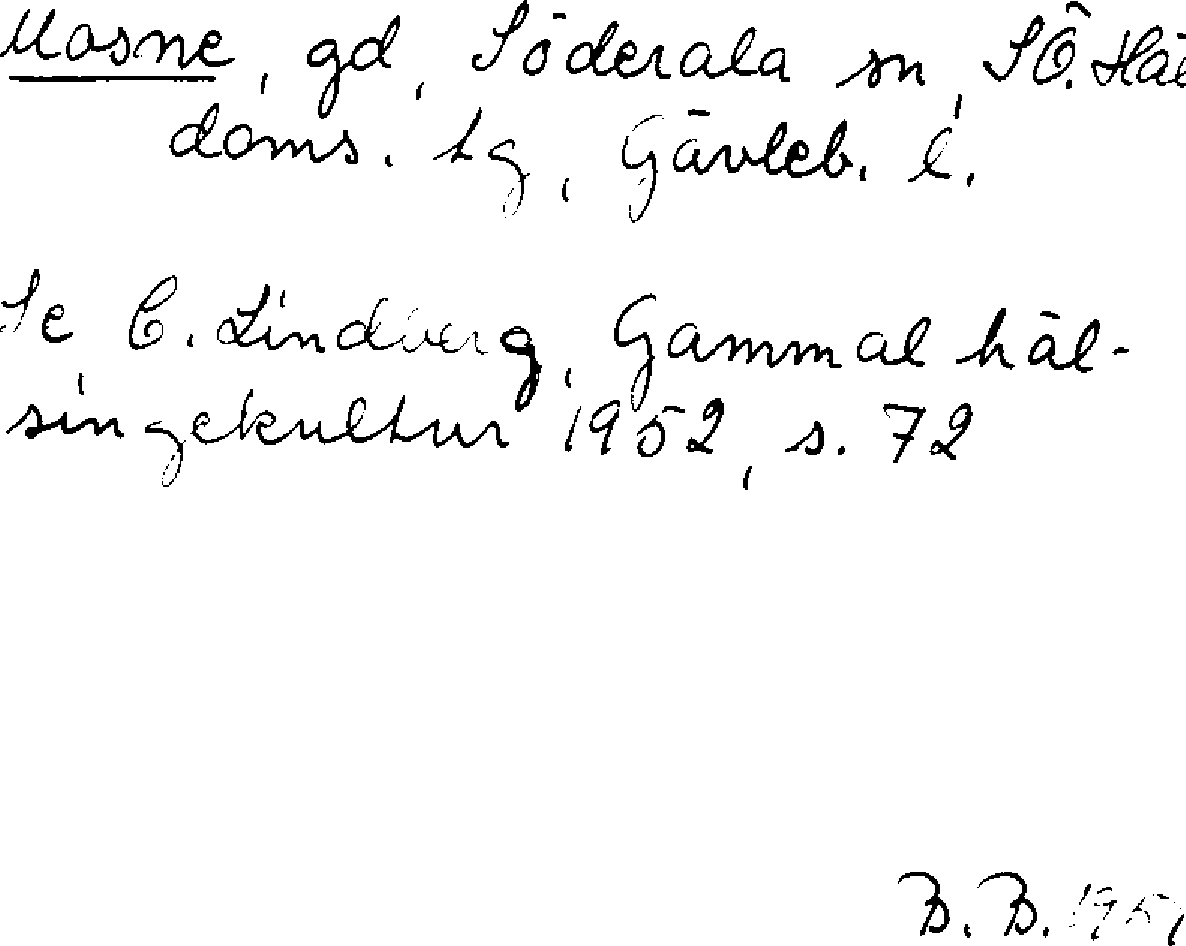 Mosne, gd, Söderala sn, SÖ. Häl
doms. tg, Gävleb. l.
Se C. Lindberg, Gammal häl-
singekultur 1952, s. 72
B. B. 1957